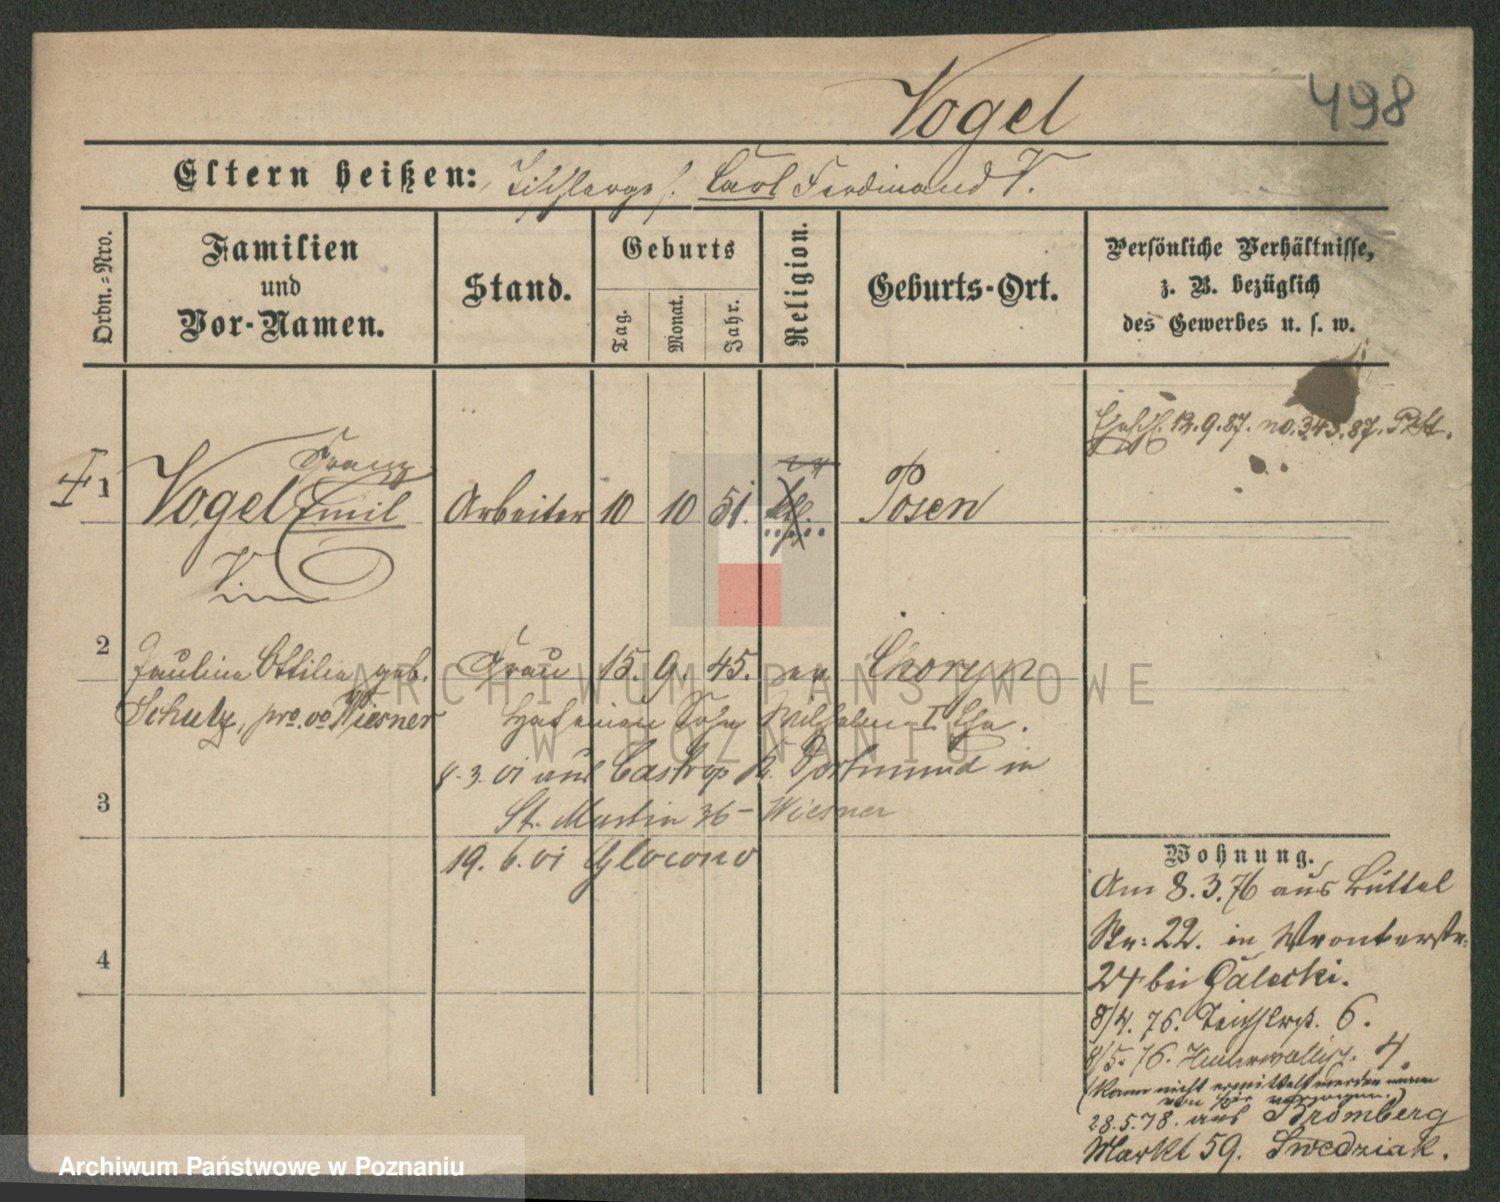 Vogel 498
Eltern heißen: Tischlerges. Carl Ferdinand V.
Ordn.-Nro.
Familien
und
Vor-Namen.
Stand.
Geburts
Tag.
Monat.
Jahr.
Religion.
Geburts-Ort.
Persönliche Verhältnisse,
z. B. bezüglich
des Gewerbes u. s. w.
12.9.87. no. 343.87.
Franz
1 Vogel Emil Arbeiter 10 10 51. Posen
2
Pauline Ottilie geb. Frau 15. 9. 45. ev. Choryn
Schulz, pro. vo. Wiesner hat einen Sohn Wilhelm I. Ehe.
8.3.01 aus Castrop K. Dortmund in
3
St. Martin 36 - Wiesner
19. 6. 01 Glowno
4
Wohnung.
Am 8.3.76 aus Büttel
Str: 22. in Wronkerstr.
24 bei Galecki.
8/4. 76. 6.
8/5. 76. 4.
(Kann nicht ermittelt werden wann
von hier verzogen.)
28.5.78. aus Bromberg
Markt 59. Swedziak.
ARCHIWUM PAŃSTWOWE
W POZNANIU
Archiwum Państwowe w Poznaniu